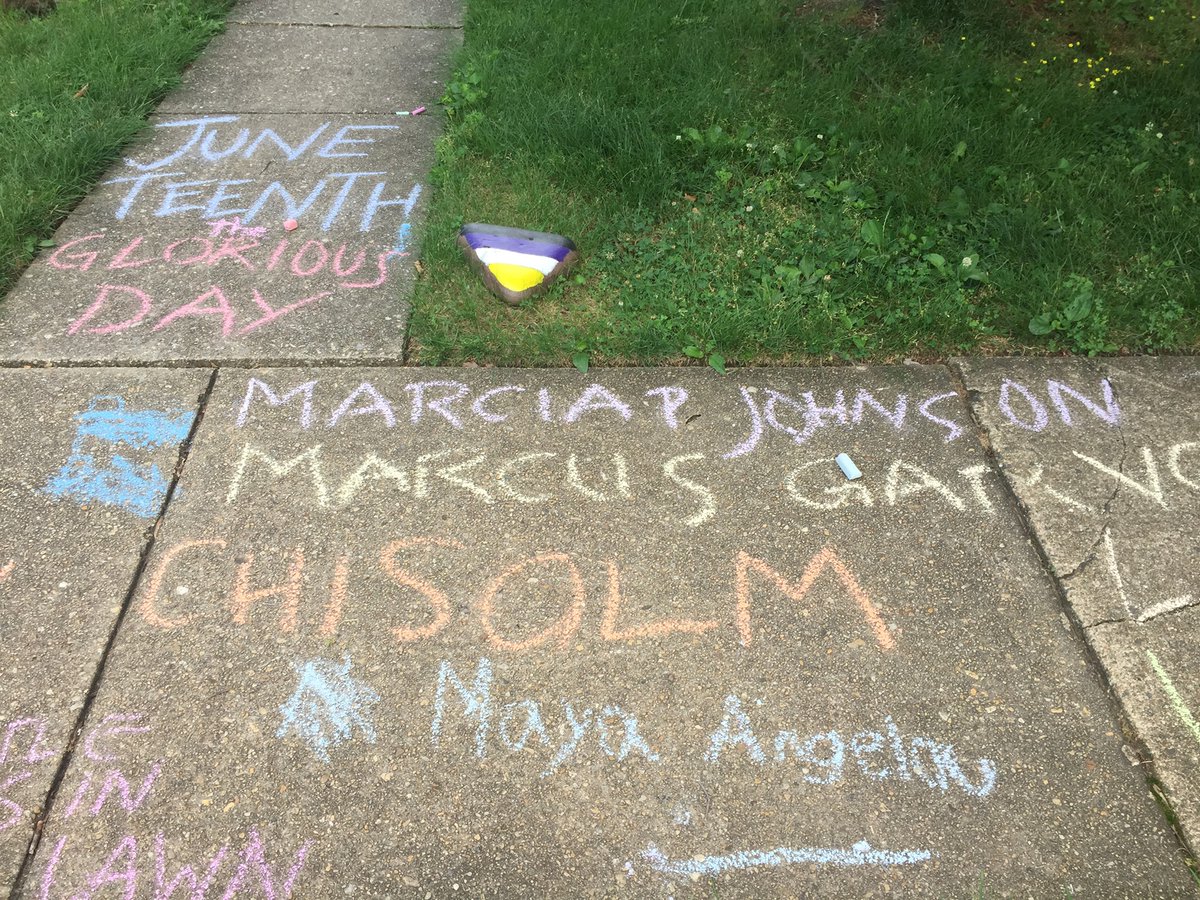 JUNE
TEENTH!
THE
GLORIOUS
DAY
MARCIA P JOHNSON
MARCUS GARV
CHISOLM
Maya Angelou
IN
LAWN